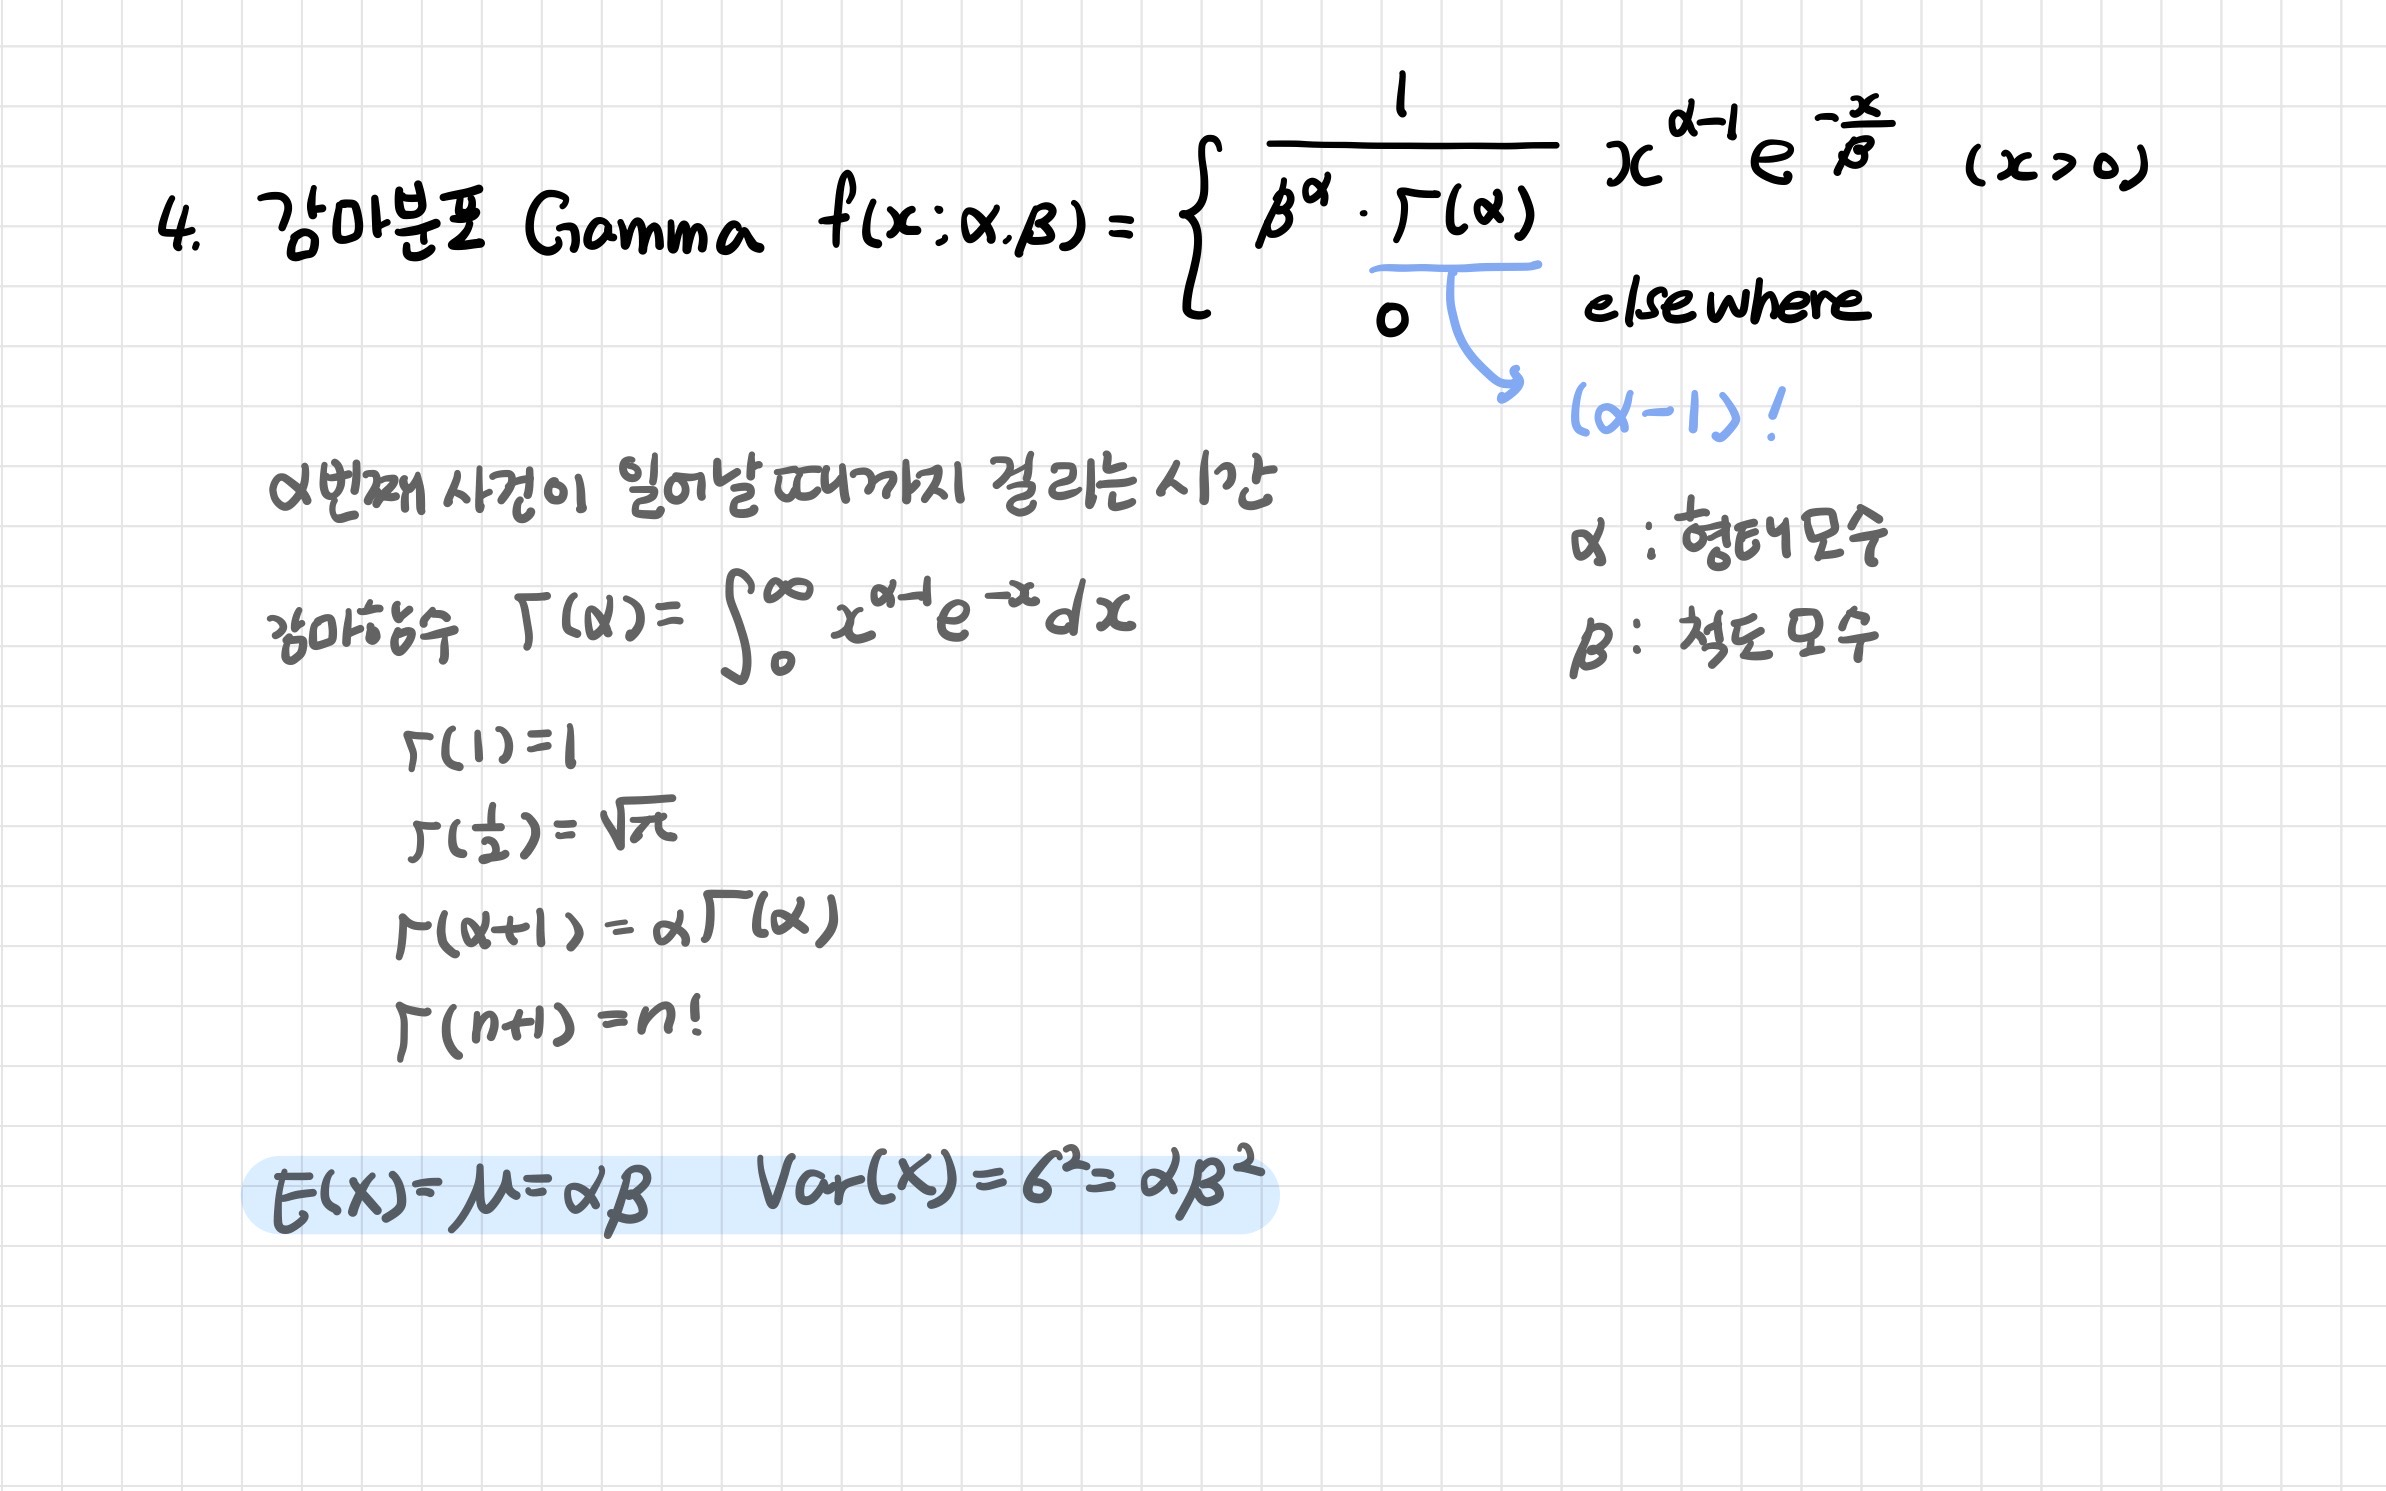 4. 감마분포 Gamma f(x; α, β) = { 1 / (β^α · Γ(α)) x^(α-1) e^(-x/β) (x > 0)
0 elsewhere
(α-1)!
α번째 사건이 일어날 때까지 걸리는 시간
α : 형태모수
감마함수 Γ(α) = ∫₀^∞ x^(α-1) e^(-x) dx
β : 척도모수
Γ(1) = 1
Γ(1/2) = √π
Γ(α+1) = αΓ(α)
Γ(n+1) = n!
E(X) = μ = αβ Var(X) = σ² = αβ²